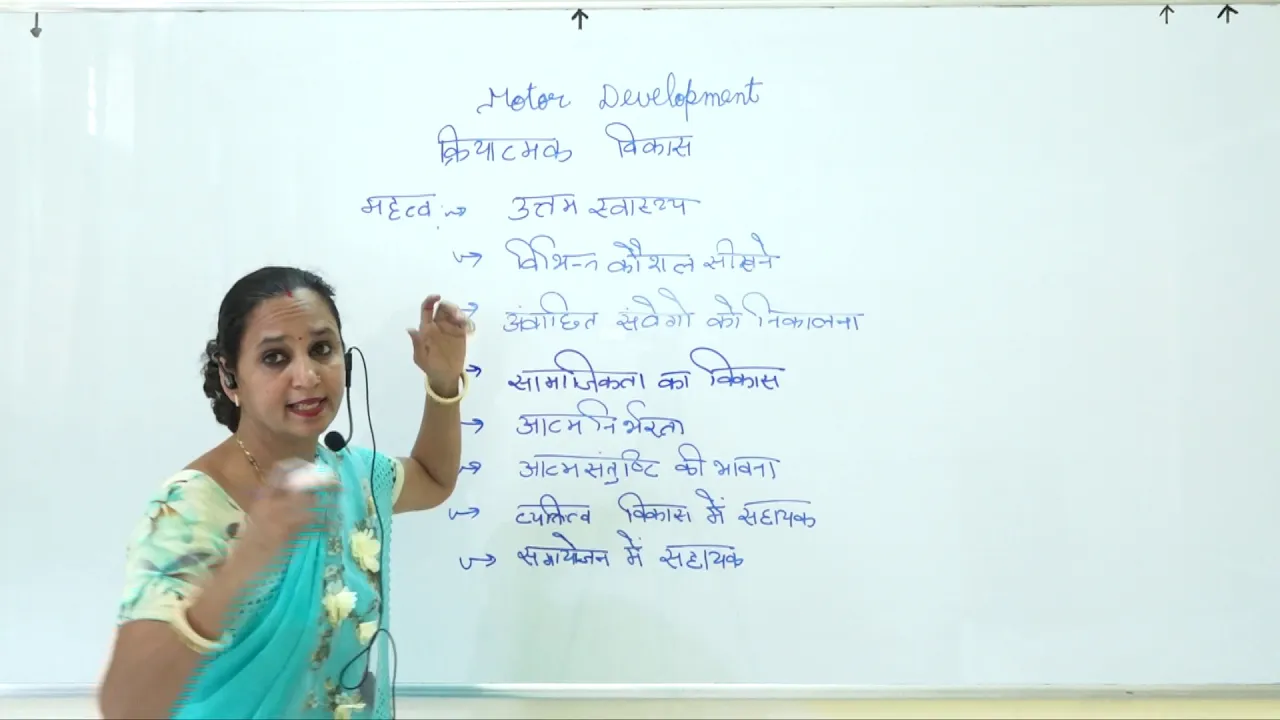 Motor Development
क्रियात्मक विकास
महत्व :→ उत्तम स्वास्थ्य
→ विभिन्न कौशल सीखने
→ अंवाछित संवेगो को निकालना
→ सामाजिकता का विकास
→ आत्म निर्भरता
→ आत्म संतुष्टि की भावना
→ व्यक्तित्व विकास में सहायक
→ समायोजन में सहायक